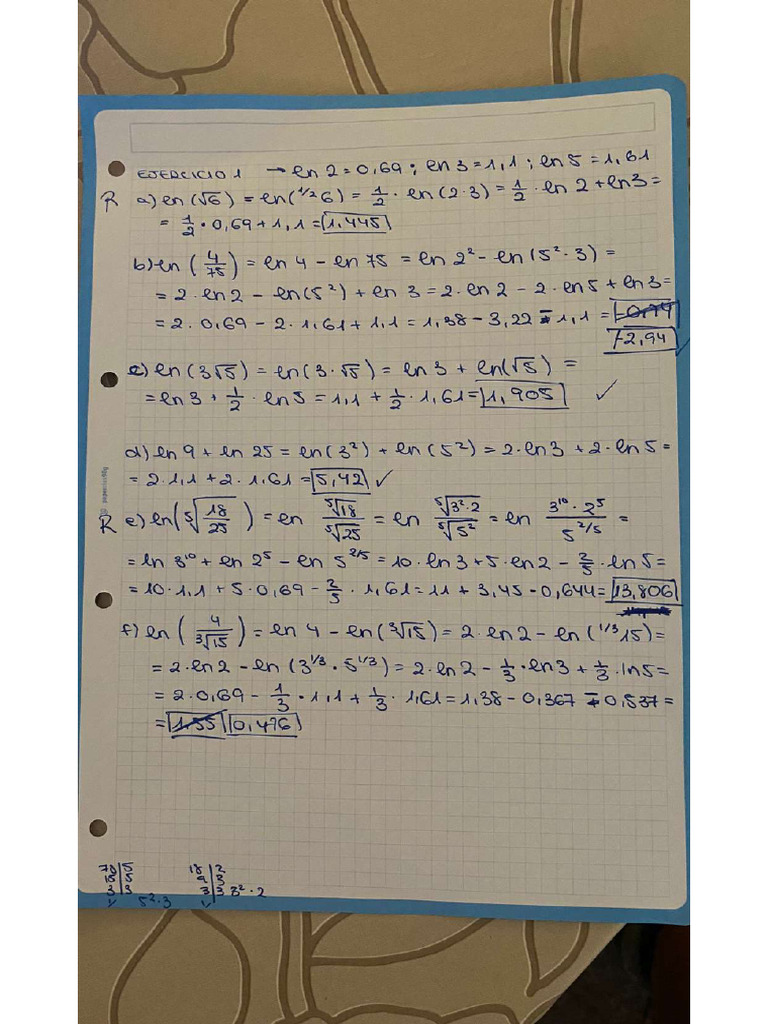 EJERCICIO 1 → ln 2 = 0,69 ; ln 3 = 1,1 ; ln 5 = 1,61
R a) ln(√6) = ln(^1/2 6) = 1/2 · ln(2·3) = 1/2 · ln 2 + ln 3 =
= 1/2 · 0,69 + 1,1 = 1,445
b) ln(4/75) = ln 4 − ln 75 = ln 2² − ln(5²·3) =
= 2·ln 2 − ln(5²) + ln 3 = 2·ln 2 − 2·ln 5 + ln 3 =
= 2·0,69 − 2·1,61 + 1,1 = 1,38 − 3,22 − 1,1 =
-2,94 ✓
c) ln(3√5) = ln(3·√5) = ln 3 + ln(√5) =
= ln 3 + 1/2 · ln 5 = 1,1 + 1/2 · 1,61 = 1,905 ✓
d) ln 9 + ln 25 = ln(3²) + ln(5²) = 2·ln 3 + 2·ln 5 =
= 2·1,1 + 2·1,61 = 5,42 ✓
R e) ln(⁵√(18/25)) = ln ⁵√18/⁵√25 = ln ⁵√(3²·2)/⁵√(5²) = ln (3¹⁰·2⁵)/5^(2/5) =
= ln 3¹⁰ + ln 2⁵ − ln 5^(2/5) = 10·ln 3 + 5·ln 2 − 2/5 · ln 5 =
= 10·1,1 + 5·0,69 − 2/5 · 1,61 = 11 + 3,45 − 0,644 = 13,806
f) ln(4/³√15) = ln 4 − ln(³√15) = 2·ln 2 − ln(^1/3 15) =
= 2·ln 2 − ln(3^(1/3) · 5^(1/3)) = 2·ln 2 − 1/3 · ln 3 + 1/3 · ln 5 =
= 2·0,69 − 1/3 · 1,1 + 1/3 · 1,61 = 1,38 − 0,367 − 0,537 =
= 1,55 0,476
75 | 5 18 | 2
15 | 5 9 | 3
3 | 3 3 | 3 3²·2
1 5²·3 1